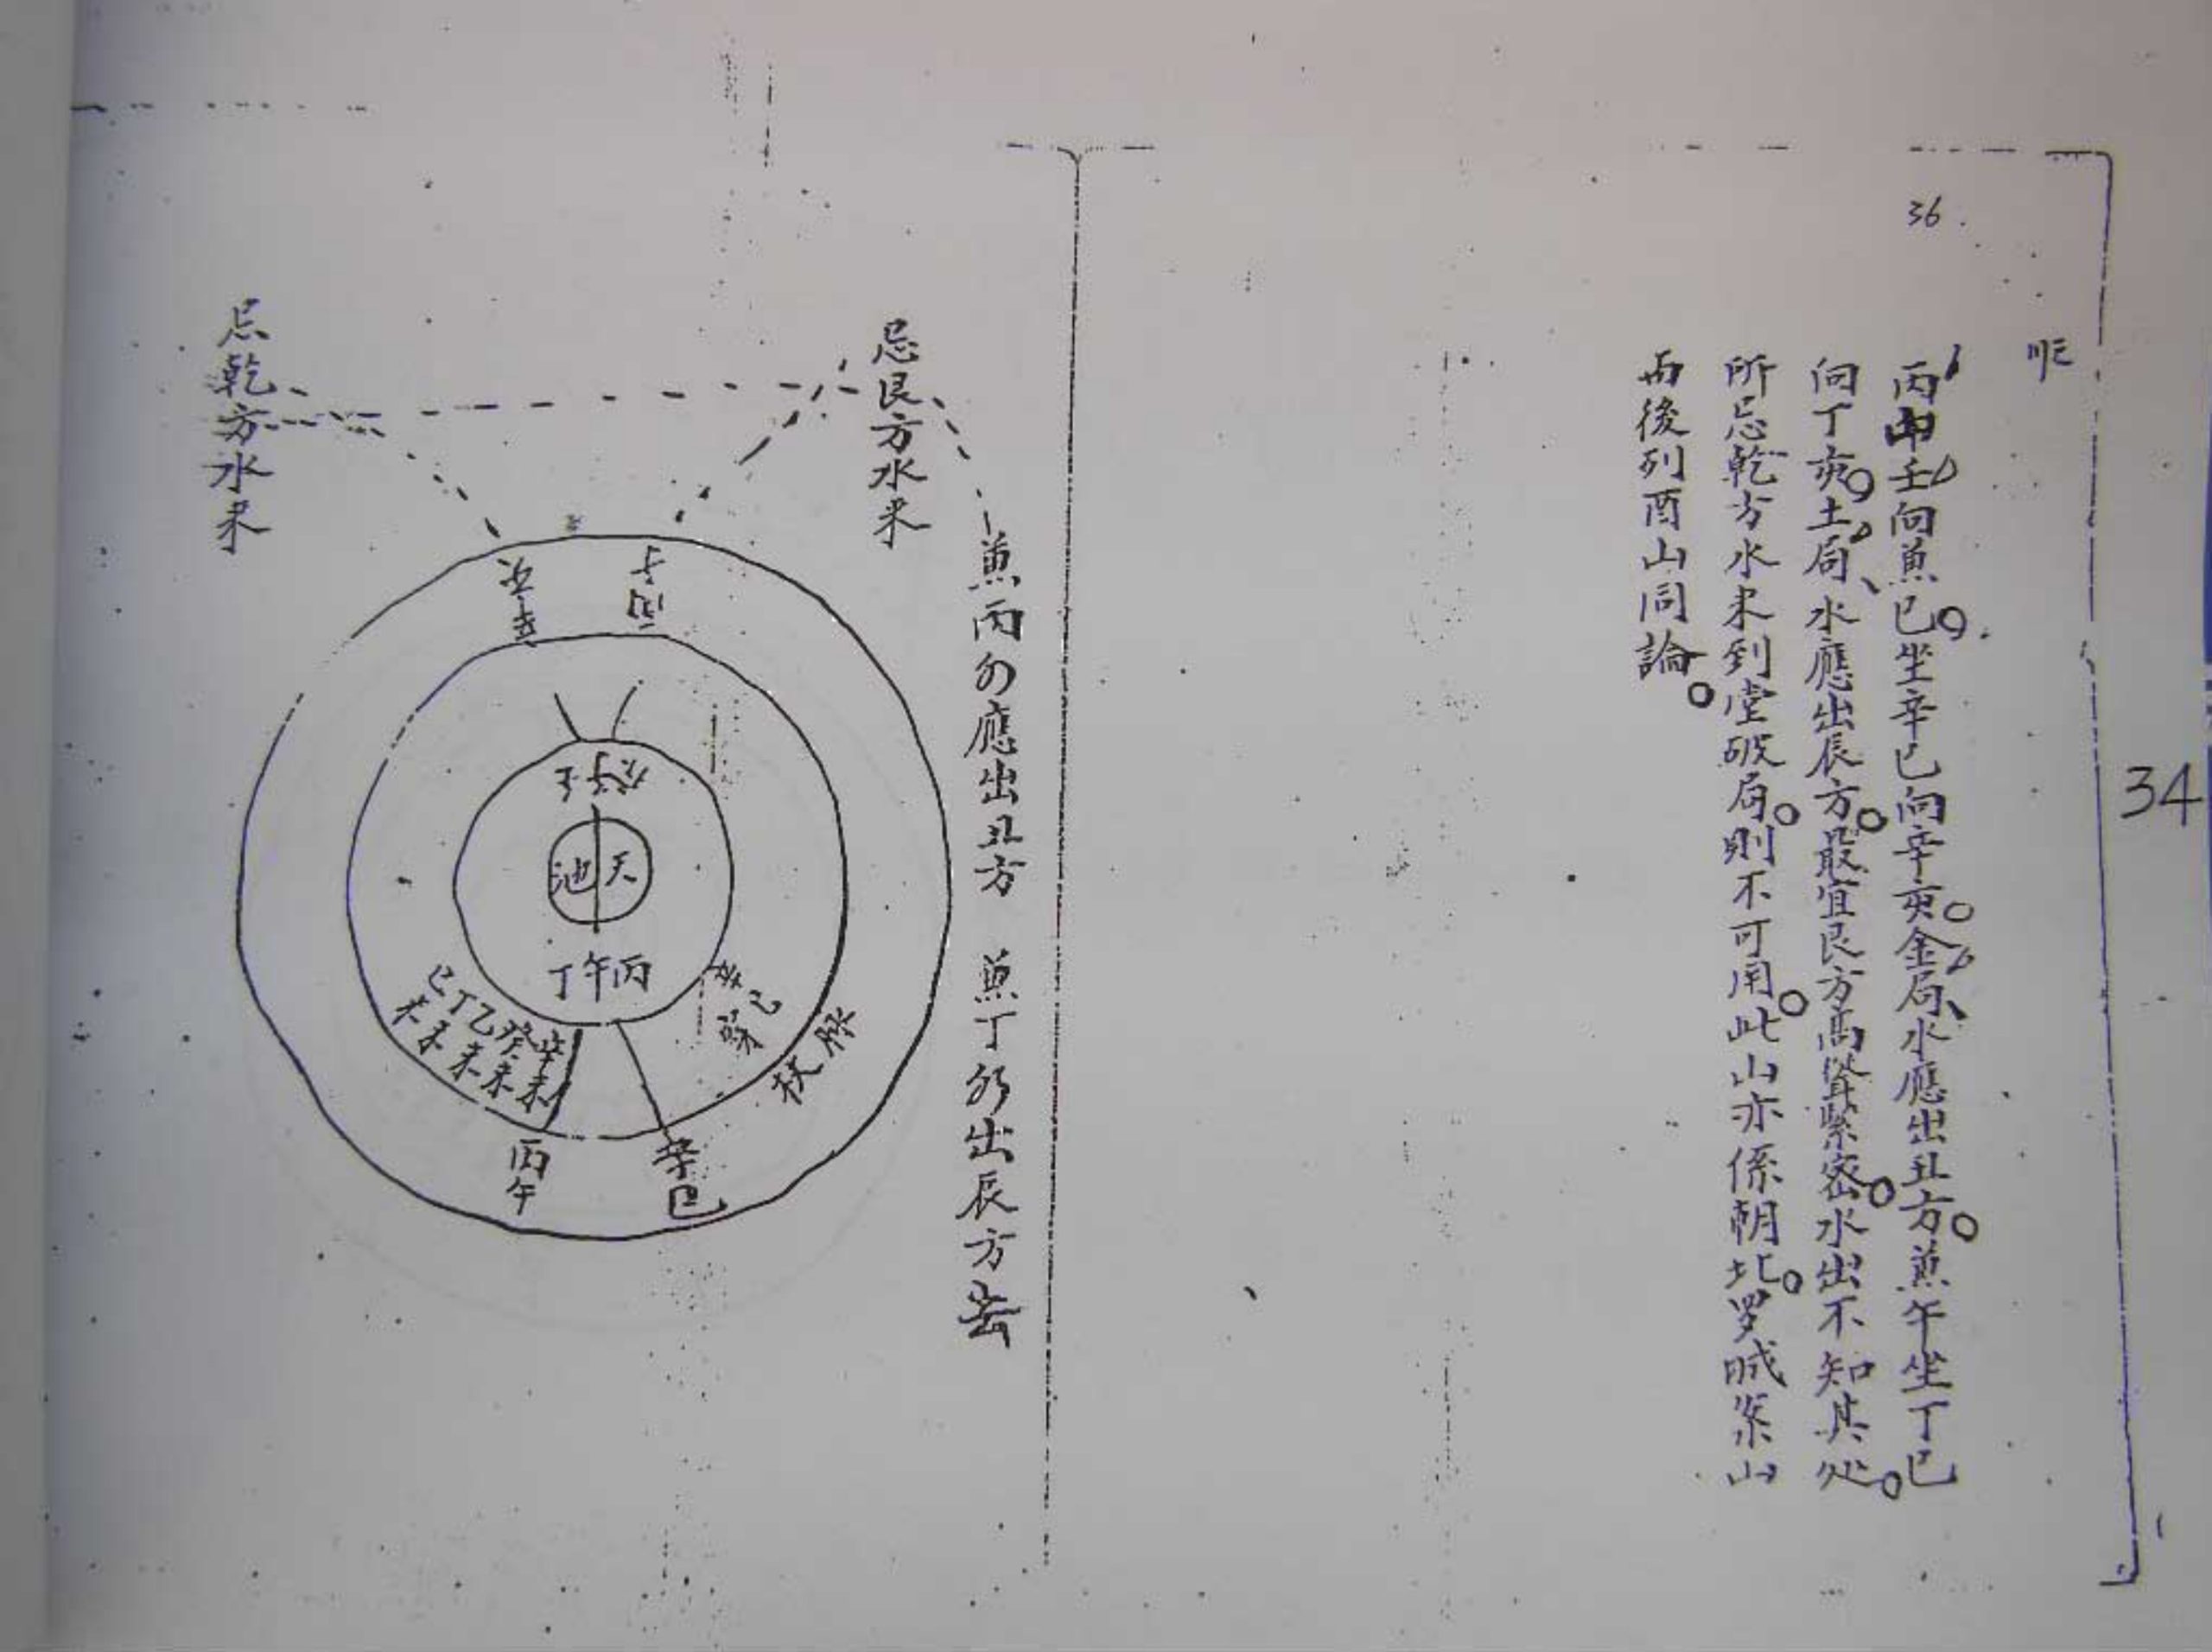 36
34
丙山壬向兼巳坐辛巳向辛亥金局水應出丑方兼午坐丁巳
向丁亥土局水應出辰方最宜艮方高聳緊密水出不知其处
所忌乾方水来到堂破局則不可用此山亦係朝北罗城案山
西後列酉山同論
兼丙仂應出丑方 兼丁仂出辰方去
忌艮方水来
忌乾方水来
壬子癸
天池
丙午丁
辛巳
辛未
癸未
乙未
丁未
己未
辛巳
丙午